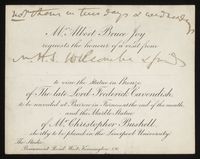 not than in ten days a
Mr. Albert Bruce Joy
requests the honour of a visit from
Mr H.S. Wellcombe & friends
to view the Statue in Bronze
of The late Lord Frederick Cavendish,
to be unveiled at Barrow in Furness at the end of the month,
and the Marble Statue
of Mr. Christopher Bushell,
shortly to be placed in the Liverpool University.
The Studio,
Beaumont Road, West Kensington, W.